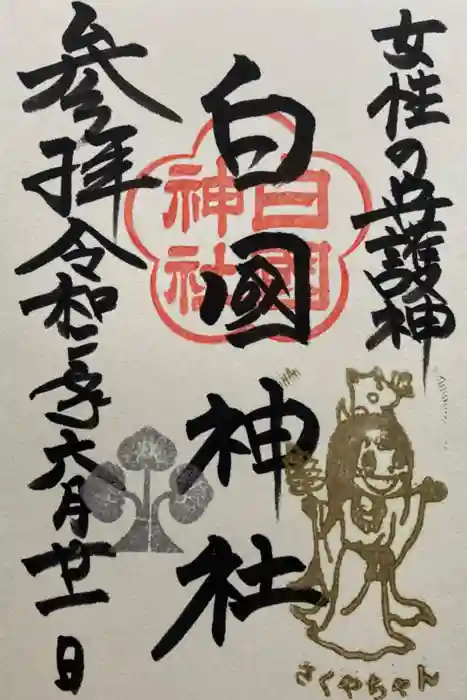 女性の守護神
白國神社
白國
神社
参拝令和三年六月廿一日
さくやちゃん